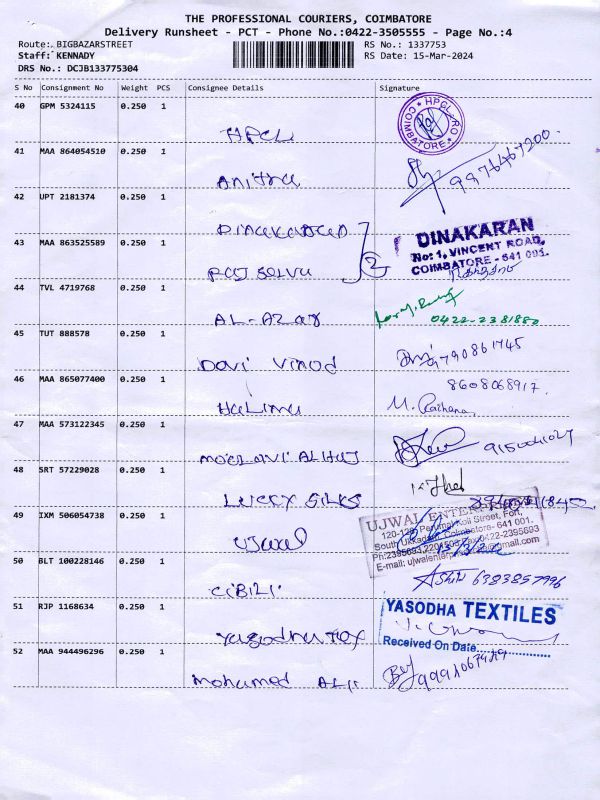 THE PROFESSIONAL COURIERS, COIMBATORE
Delivery Runsheet - PCT - Phone No.:0422-3505555 - Page No.:4
Route: BIGBAZARSTREET
RS No.: 1337753
Staff: KENNADY
RS Date: 15-Mar-2024
DRS No.: DCJB133775304
S No Consignment No Weight PCS Consignee Details Signature
40 GPM 5324115 0.250 1
HPCL
HPCL-RO COIMBATORE
41 MAA 864054510 0.250 1
Anitha 9976467200
42 UPT 2181374 0.250 1
Dinakaran
DINAKARAN
No: 1, VINCENT ROAD,
COIMBATORE - 641 001.
43 MAA 863525589 0.250 1
Raj Selvu 2
44 TVL 4719768 0.250 1
AL-AZAR 0422-2381880
45 TUT 888578 0.250 1
Davi Vinod 9790861745
46 MAA 865077400 0.250 1
8608068917
Halima M. Raihana
47 MAA 573122345 0.250 1
MOELAVI ALHAJ
48 SRT 57229028 0.250 1
LUCKY SILKS
49 IXM 506054738 0.250 1
Ujwal
UJWAL ENTERPRISES
120-128, Perumal Koil Street, Fort,
South Ukkadam, Coimbatore- 641 001.
Ph:2395693,2201503 Fax:0422-2395693
E-mail: @gmail.com
50 BLT 100228146 0.250 1
CIBILI 6383857996
51 RJP 1168634 0.250 1
Yasodha Tex
YASODHA TEXTILES
Received On Date
52 MAA 944496296 0.250 1
Mohamed Ali